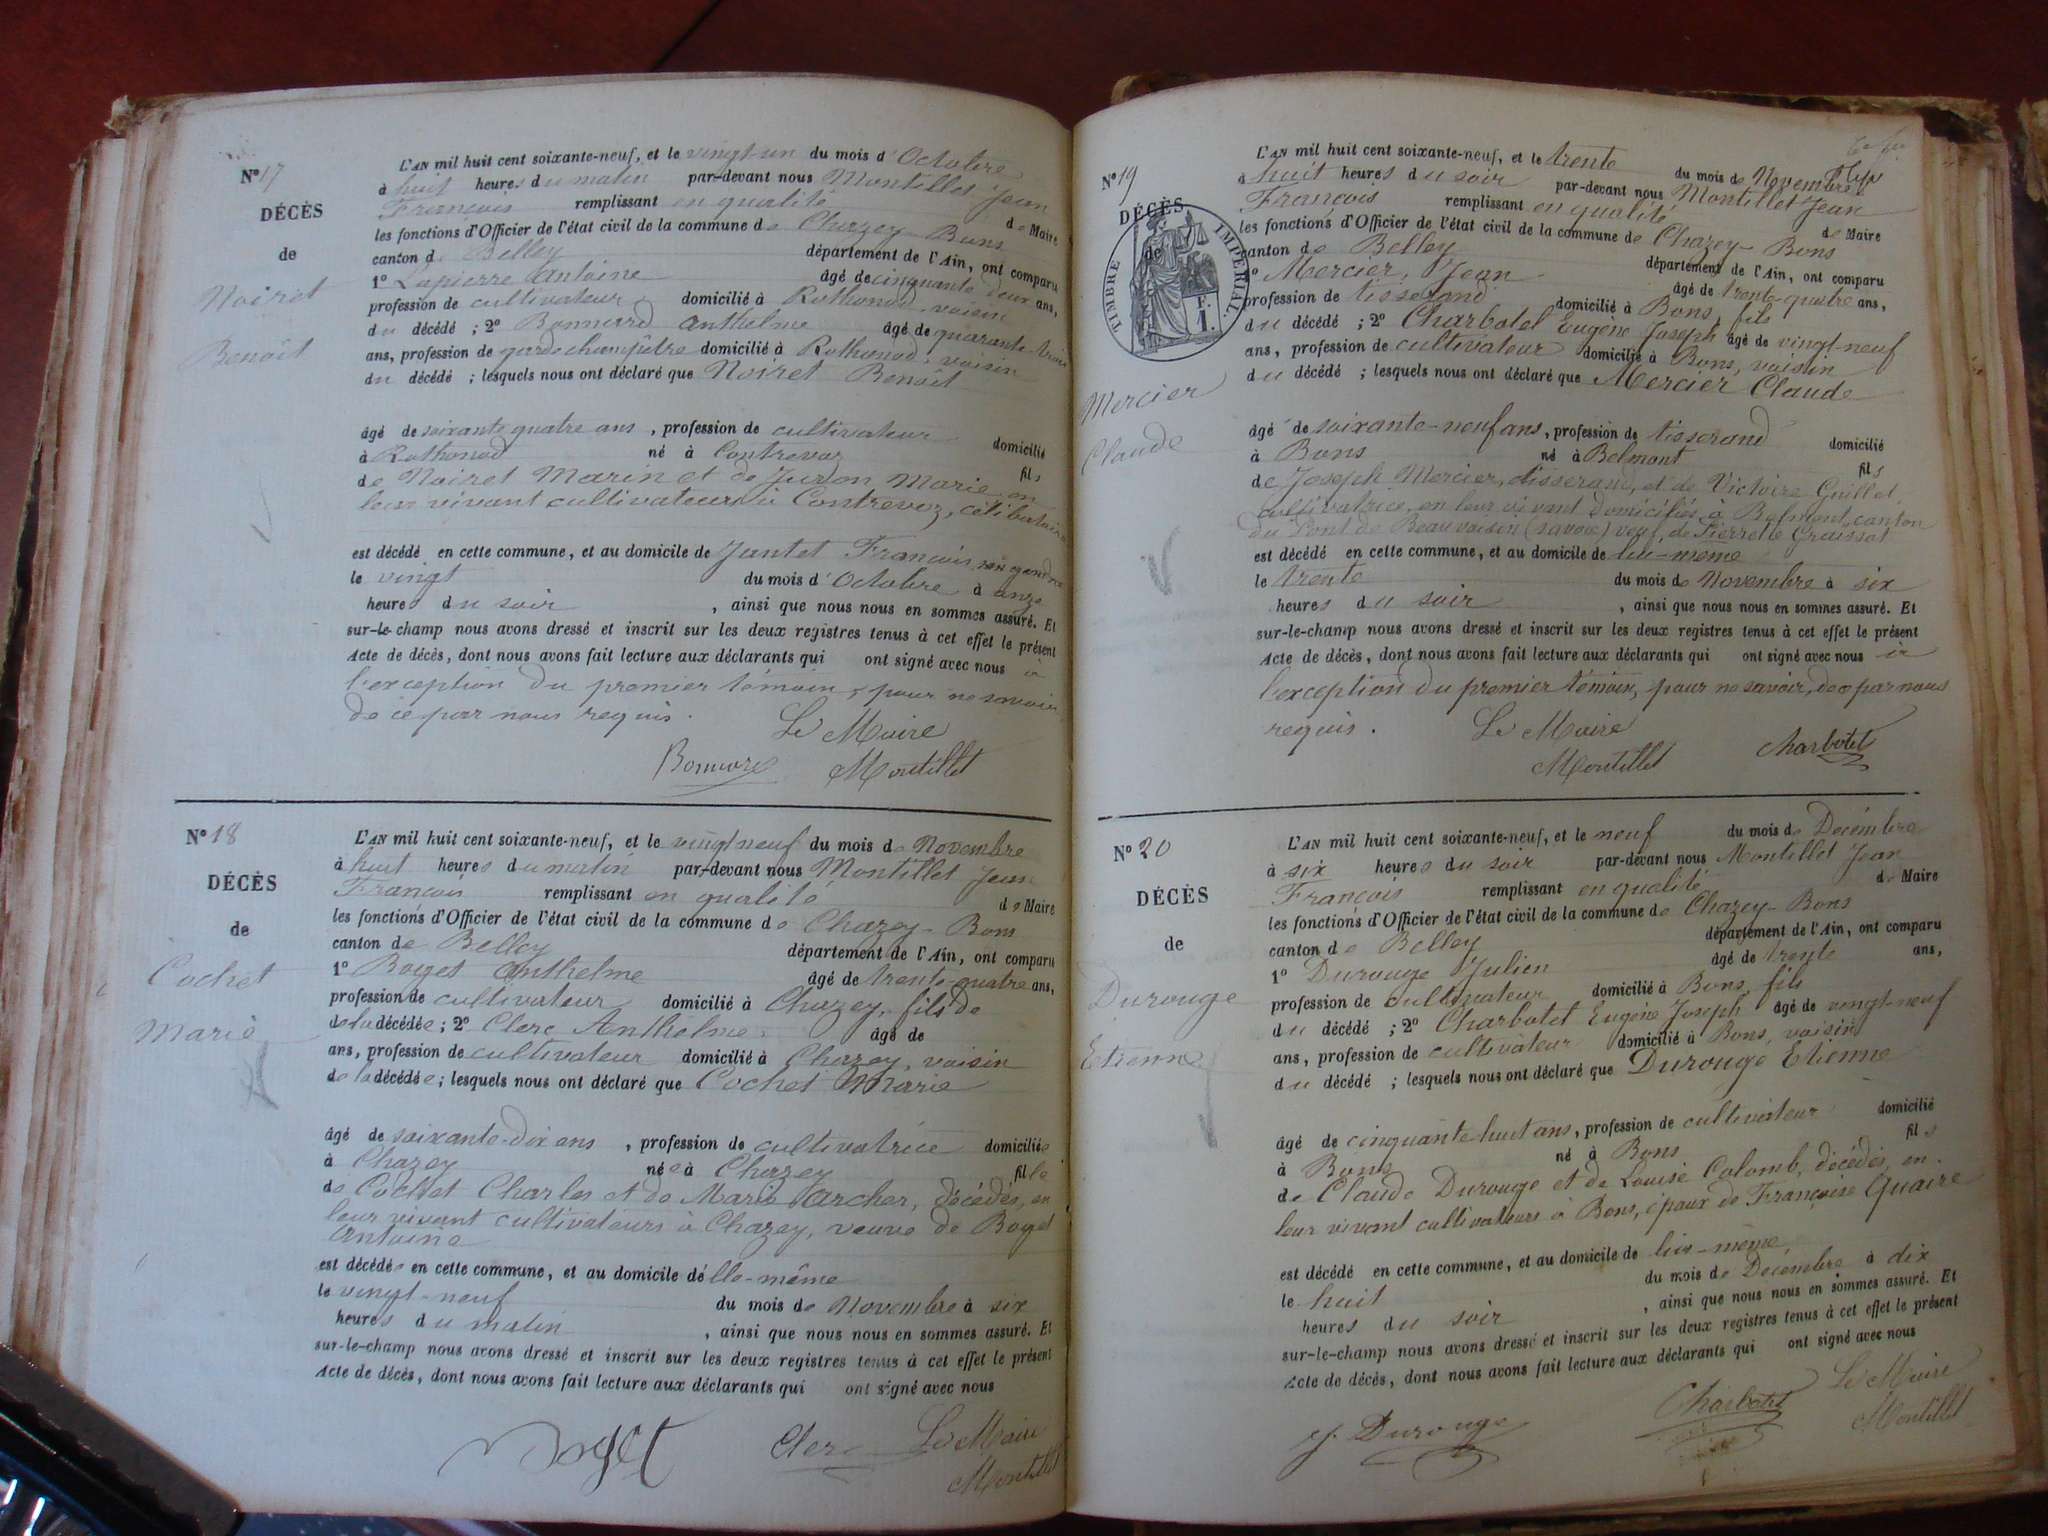 N° 17
DÉCÈS
de
Noiret
Benoît
L'AN mil huit cent soixante-neuf, et le vingt-un du mois d'Octobre
à huit heures du matin par-devant nous Montillet Jean
François remplissant en qualité de Maire
les fonctions d'Officier de l'état civil de la commune de Chazey-Bons
canton de Belley département de l'Ain, ont comparu
1° Lapierre Antoine âgé de cinquante deux ans,
profession de cultivateur domicilié à Rothonod, voisin
du décédé ; 2° Bonnard Anthelme âgé de quarante-trois
ans, profession de garde champêtre domicilié à Rothonod, voisin
du décédé ; lesquels nous ont déclaré que Noiret Benoît
âgé de soixante quatre ans, profession de cultivateur domicilié
à Rothonod né à Contrevoz fils
de Noiret Marin et de Marie en
leur vivant cultivateurs à Contrevoz, célibataire
est décédé en cette commune, et au domicile de Jantet François, son gendre
le vingt du mois d'Octobre à onze
heures du soir, ainsi que nous nous en sommes assuré. Et
sur-le-champ nous avons dressé et inscrit sur les deux registres tenus à cet effet le présent
Acte de décès, dont nous avons fait lecture aux déclarants qui ont signé avec nous à
l'exception du premier témoin, pour ne savoir,
de ce par nous requis.
Le Maire
Bonnard Montillet
N° 18
DÉCÈS
de
Cochet
Marie
L'AN mil huit cent soixante-neuf, et le vingt neuf du mois de Novembre
à huit heures du matin par-devant nous Montillet Jean
François remplissant en qualité de Maire
les fonctions d'Officier de l'état civil de la commune de Chazey-Bons
canton de Belley département de l'Ain, ont comparu
1° Boget Anthelme âgé de trente-quatre ans,
profession de cultivateur domicilié à Chazey, fils de
de la décédée ; 2° Clerc Anthelme âgé de
ans, profession de cultivateur domicilié à Chazey, voisin
de la décédée ; lesquels nous ont déclaré que Cochet Marie
âgé de soixante-dix ans, profession de cultivatrice domiciliée
à Chazey née à Chazey fille
de Cochet Charles et de Marie Archer, décédés, en
leur vivant cultivateurs à Chazey, veuve de Boget
Antoine
est décédée en cette commune, et au domicile d'elle-même
le vingt-neuf du mois de Novembre à six
heures du matin, ainsi que nous nous en sommes assuré. Et
sur-le-champ nous avons dressé et inscrit sur les deux registres tenus à cet effet le présent
Acte de décès, dont nous avons fait lecture aux déclarants qui ont signé avec nous
Boget Clerc Le Maire
Montillet
N° 19
DÉCÈS
de
TIMBRE IMPÉRIAL
F.
1.
Mercier
Claude
L'AN mil huit cent soixante-neuf, et le trente du mois de Novembre
à huit heures du soir par-devant nous Montillet Jean
François remplissant en qualité de Maire
les fonctions d'Officier de l'état civil de la commune de Chazey-Bons
canton de Belley département de l'Ain, ont comparu
1° Mercier, Jean âgé de trente-quatre ans,
profession de tisserand domicilié à Bons, fils
du décédé ; 2° Charbotel Eugène Joseph âgé de vingt-neuf
ans, profession de cultivateur domicilié à Bons, voisin
du décédé ; lesquels nous ont déclaré que Mercier Claude
âgé de soixante-neuf ans, profession de tisserand domicilié
à Bons né à Belmont fils
de Joseph Mercier, tisserand, et de Victoire Guillet
cultivatrice, en leur vivant domiciliés à Belmont, canton
du Pont de Beauvoisin (Savoie) veuf, de Pierrette
est décédé en cette commune, et au domicile de lui-même
le trente du mois de Novembre à six
heures du soir, ainsi que nous nous en sommes assuré. Et
sur-le-champ nous avons dressé et inscrit sur les deux registres tenus à cet effet le présent
Acte de décès, dont nous avons fait lecture aux déclarants qui ont signé avec nous à
l'exception du premier témoin, pour ne savoir, de ce par nous
requis. Le Maire
Montillet Charbotel
N° 20
DÉCÈS
de
Durouge
Etienne
L'AN mil huit cent soixante-neuf, et le neuf du mois de Décembre
à six heures du soir par-devant nous Montillet Jean
François remplissant en qualité de Maire
les fonctions d'Officier de l'état civil de la commune de Chazey-Bons
canton de Belley département de l'Ain, ont comparu
1° Durouge Julien âgé de trente ans,
profession de cultivateur domicilié à Bons, fils
du décédé ; 2° Charbotet Eugène Joseph âgé de vingt-neuf
ans, profession de cultivateur domicilié à Bons, voisin
du décédé ; lesquels nous ont déclaré que Durouge Etienne
âgé de cinquante huit ans, profession de cultivateur domicilié
à Bons né à Bons fils
de Claude Durouge et de Louise Colomb, décédés, en
leur vivant cultivateurs à Bons, époux de Françoise Quaire
est décédé en cette commune, et au domicile de lui-même,
le huit du mois de Décembre à dix
heures du soir, ainsi que nous nous en sommes assuré. Et
sur-le-champ nous avons dressé et inscrit sur les deux registres tenus à cet effet le présent
Acte de décès, dont nous avons fait lecture aux déclarants qui ont signé avec nous
J. Durouge Charbotel Le Maire
Montillet